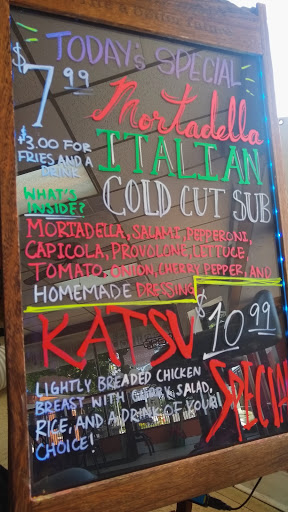 TODAY'S SPECIAL
$7.99
Mortadella
$3.00 FOR
FRIES AND A
DRINK
ITALIAN
WHAT'S
INSIDE?
COLD CUT SUB
MORTADELLA, SALAMI, PEPPERONI,
CAPICOLA, PROVOLONE, LETTUCE
TOMATO, ONION, CHERRY PEPPER, AND
HOMEMADE DRESSING
KATSU $10.99
LIGHTLY BREADED CHICKEN
BREAST WITH CURRY, SALAD,
RICE, AND A DRINK OF YOUR
CHOICE!
SPECIAL